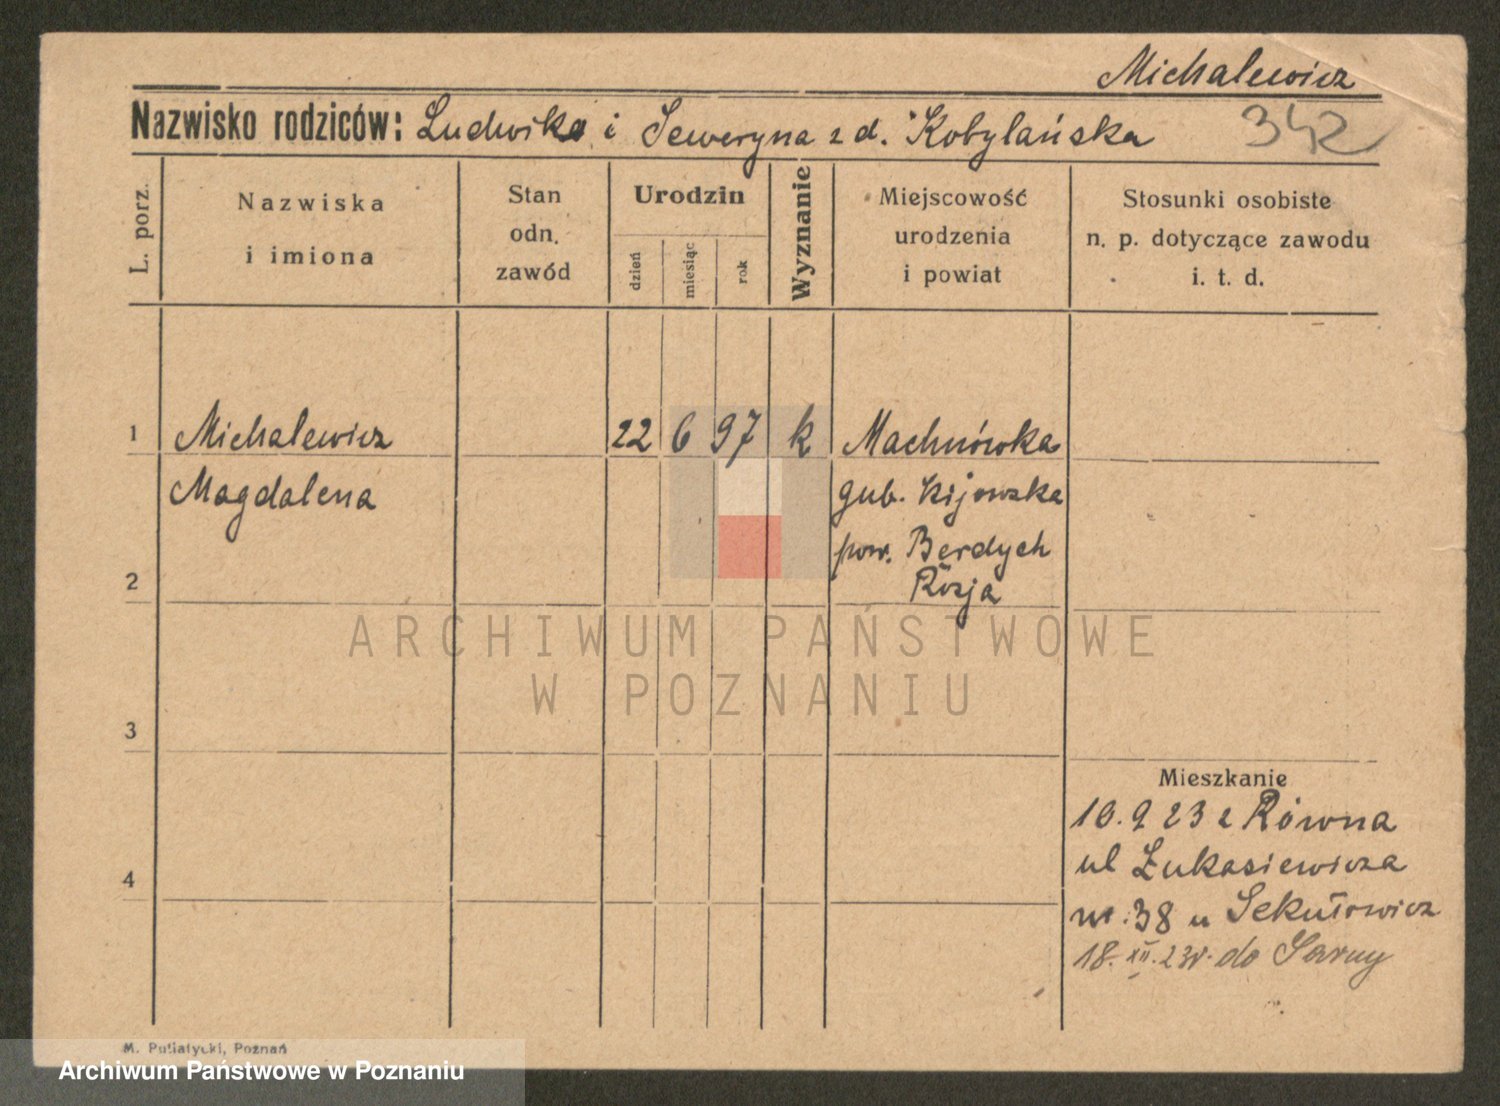 Michalewicz
Nazwisko rodziców: Ludwika i Seweryna z d. Kobylańska
342
L. porz.
Nazwiska
i imiona
Stan
odn.
zawód
Urodzin
dzień
miesiąc
rok
Wyznanie
Miejscowość
urodzenia
i powiat
Stosunki osobiste
n. p. dotyczące zawodu
i. t. d.
1 Michalewicz 22 6 97 k Machnówka
Magdalena gub. Kijowska
pow. Berdych
2 Rosja
ARCHIWUM PAŃSTWOWE
W POZNANIU
3
Mieszkanie
10.9 23 z Równa
ul Łukasiewicza
4
nr. 38 u Sekułowicz
18. XII. 23r. do Sarny
M. Putiatycki, Poznań
Archiwum Państwowe w Poznaniu